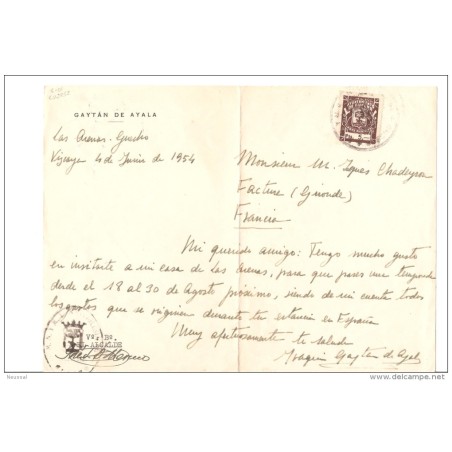 GAYTÁN DE AYALA
Las Arenas - Guecho
Vizcaya 4 de Junio de 1954
Monsieur M.
Facture (Gironde)
Francia
Mi querido amigo: Tengo mucho gusto
en invitarte a mi casa de Las Arenas, para que pases una temporada
desde el 18 al 30 de Agosto próximo, siendo de mi cuenta todos
los gastos que se originen durante tu estancia en España
Muy afectuosamente te saluda
Joaquin Gaytán de Ayala
Vº. Bº.
ALCALDE
Neuvoal
delcampe.net